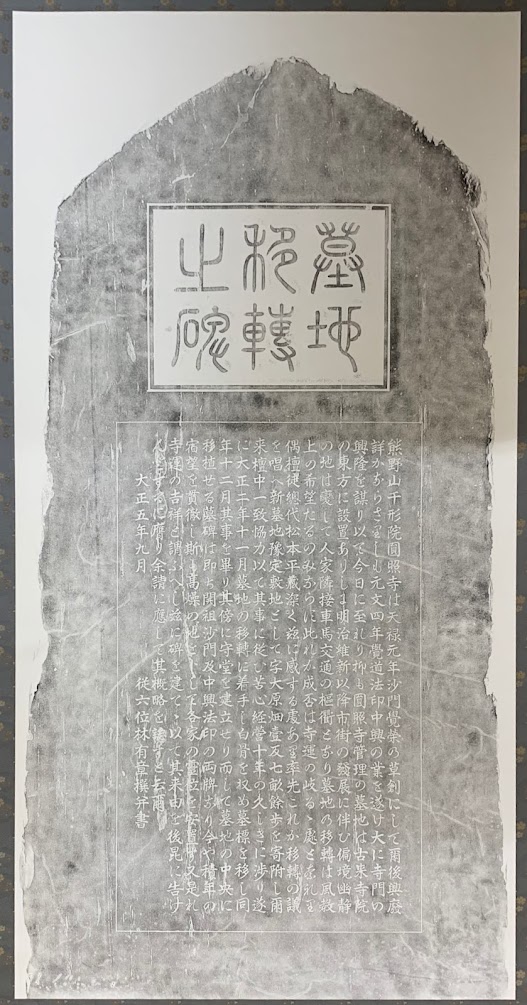 墓地
移轉
之碑
熊野山千形院圓照寺は天禄元年沙門覺榮の草創にして爾後興廢
詳かならさるしも元文四年覺道法印中興の業を遂け大に寺門の
興隆を謀り以て今日に至れり抑も圓照寺管理の墓地は古来寺院
の東方に設置ありしも明治維新以降市街の發展に伴ひ偏境幽静
の地は變して人家隣接車馬交通の樞衝となり墓地の移轉は風教
上の希望たるのみならす此れか成否は寺運の岐るゝ處となれり
偶檀徒總代松本平藏深く茲に感する處あり率先これか移轉の議
を唱へ新墓地豫定敷地として字大原畑壹反七畝餘歩を寄附し爾
来檀中一致協力以て其事に従ひ苦心經營十年の久しきに渉り遂
に大正二年十一月墓地の移轉に着手し白骨を收め墓標を移し同
年十二月其事を畢り其傍に守堂を建立せり而して墓地の中央に
移植せる墓碑は即ち開祖沙門及中興法印の両牌なり今や積年の
宿望を貫徹し斯る高燥の地をトして各家の靈位を安置す又是れ
寺運の吉祥と謂ふへし茲に碑を建てゝ以て其来由を後昆に告け
んとするに際り余請に應して其概略を鑄すと云爾
大正五年九月 従六位林有章撰幷書